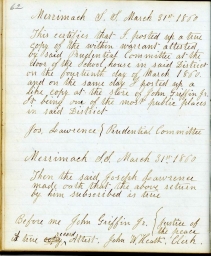 62
Merrimack S. H. March 31st 1860
This certifies that I posted up a true
copy of the within warrant attested
by said Prudential Committee at the
door of the School house in said District
on the fourteenth day of March 1860.
and on the same day I posted up a
like copy at the store of John Griffin Jr.
it being one of the most public places
in said District
Jos. Lawrence } Prudential Committee
Merrimack Sd March 31st 1860
Then the said Joseph Lawrence
made oath that the above return
by him subscribed is true
Before me John Griffin Jr. } Justice of
the peace
A true record Attest. John W. Heath, Clerk.